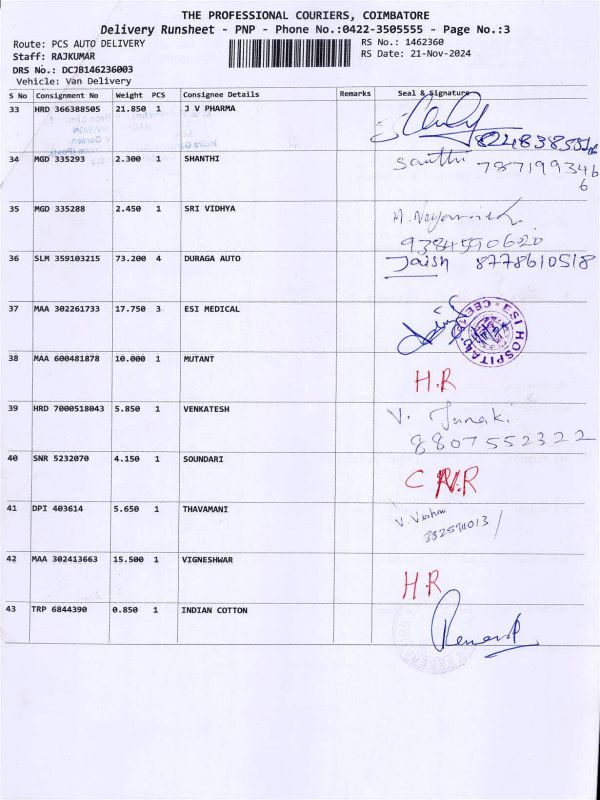 THE PROFESSIONAL COURIERS, COIMBATORE
Delivery Runsheet - PNP - Phone No.:0422-3505555 - Page No.:3
Route: PCS AUTO DELIVERY RS No.: 1462360
Staff: RAJKUMAR RS Date: 21-Nov-2024
DRS No.: DCJB146236003
Vehicle: Van Delivery
S No Consignment No Weight PCS Consignee Details Remarks Seal & Signature
33 HRD 366388505 21.850 1 J V PHARMA
34 MGD 335293 2.300 1 SHANTHI Santhi 787199346
6
35 MGD 335288 2.450 1 SRI VIDHYA
9384590620
36 SLM 359103215 73.200 4 DURAGA AUTO Jaish 8778610518
37 MAA 302261733 17.750 3 ESI MEDICAL ESI HOSPITAL
38 MAA 600481878 10.000 1 MUTANT H.R
39 HRD 7000518043 5.850 1 VENKATESH V. Janaki
8807552322
40 SNR 5232070 4.150 1 SOUNDARI
41 DPI 403614 5.650 1 THAVAMANI
42 MAA 302413663 15.500 1 VIGNESHWAR H.R
43 TRP 6844390 0.850 1 INDIAN COTTON